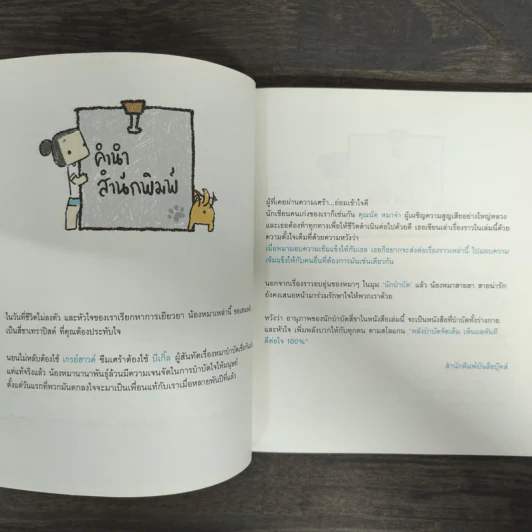 คำนำ
สำนักพิมพ์
ในวันที่ชีวิตไม่ลงตัว และหัวใจของเราเรียกหาการเยียวยา น้องหมาเหล่านี้
เป็นสี่ขาเทราปิสต์ ที่คุณต้องประทับใจ
นอนไม่หลับต้องใช้ เกรย์ฮาวด์ ซึมเศร้าต้องใช้ บีเกิ้ล ผู้สันทัดเรื่องหมาบำบัด
แต่แท้จริงแล้ว น้องหมานานาพันธุ์ล้วนมีความเจนจัดในการบำบัดใจให้มนุษย์
ตั้งแต่วันแรกที่พวกมันตกลงใจจะมาเป็นเพื่อนแท้กับเราเมื่อหลายพันปีที่แล้ว
ผู้ที่เคยผ่านความเศร้า...ย่อมเข้าใจดี
นักเขียนคนเก่งของเราก็เช่นกัน คุณนัด หมาจ๋า ผู้เผชิญความสูญเสียอย่างใหญ่หลวง
และเธอต้องทำทุกทางเพื่อให้ชีวิตดำเนินต่อไปด้วยดี เธอเขียนเล่าเรื่องราวในเล่มนี้ด้วย
ความตั้งใจเต็มที่ด้วยความหวังว่า
เมื่อหมามอบความเข้มแข็งให้กับเธอ เธอก็อยากจะส่งต่อเรื่องราวเหล่านี้ ไปมอบความ
เข้มแข็งให้กับคนอื่นที่ต้องการมันเช่นเดียวกัน
นอกจากเรื่องราวอบอุ่นของหมาๆ ในมุม 'นักบำบัด' แล้ว น้องหมาสายฮา สายน่ารัก
ยังคงเสนอหน้ามาร่วมรักษาใจให้พวกเราด้วย
หวังว่า อานุภาพของนักบำบัดสี่ขาในหนังสือเล่มนี้ จะเป็นหนังสือที่บำบัดทั้งร่างกาย
และหัวใจ เพิ่มพลังบวกให้กับทุกคน ตามสโลแกน "พลังบำบัดจัดเต็ม เห็นผลทันที
ดีต่อใจ 100%"
สำนักพิมพ์บันลือบุ๊คส์